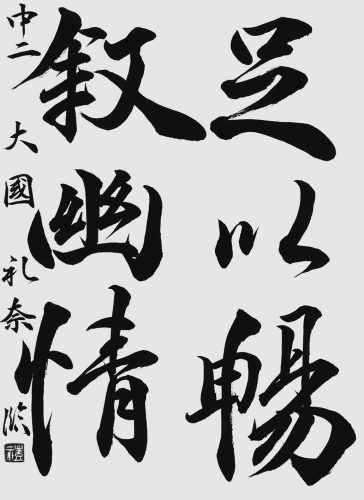 足以暢
叙幽情
中二 大國礼奈 臨